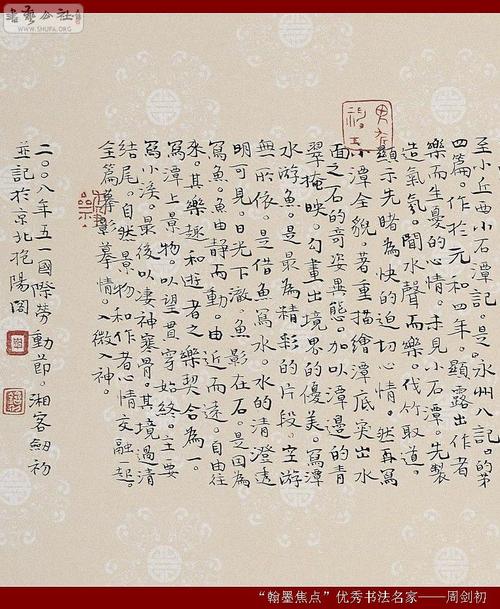 书艺公社
WWW.SHUFA.ORG
至小丘西小石潭記。是永州八記。的第
四篇。作於元和四年。顯露出作者
樂而生憂的心情。未見小石潭。先製
造氣氛。聞水聲而樂。伐竹取道。
顯示先睹為快的迫切心情。然再寫
小潭全貌。著重描繪潭底突出水
面之石的奇姿異態。加以潭邊的青
翠掩映。勾畫出境界的優美。寫潭
水游魚。是最為精彩的片段。空游
無所依。是借魚寫水。水的清澄透
明可見。日光下澈。魚影在石。是因為
寫魚。魚由靜而動。由近而遠。自由往
來。其樂趣和遊者之樂契合為一。
寫潭上景物。以望貫穿始終。主要
寫小溪。最後以凄神寒骨。其境過清
結尾。自然景物和作者心情交融起。
全篇摹景摹情。入微入神。
二〇〇八年五一國際勞動節。湘客劍初
並記於京北挹陽閣
“翰墨焦点”优秀书法名家——周剑初